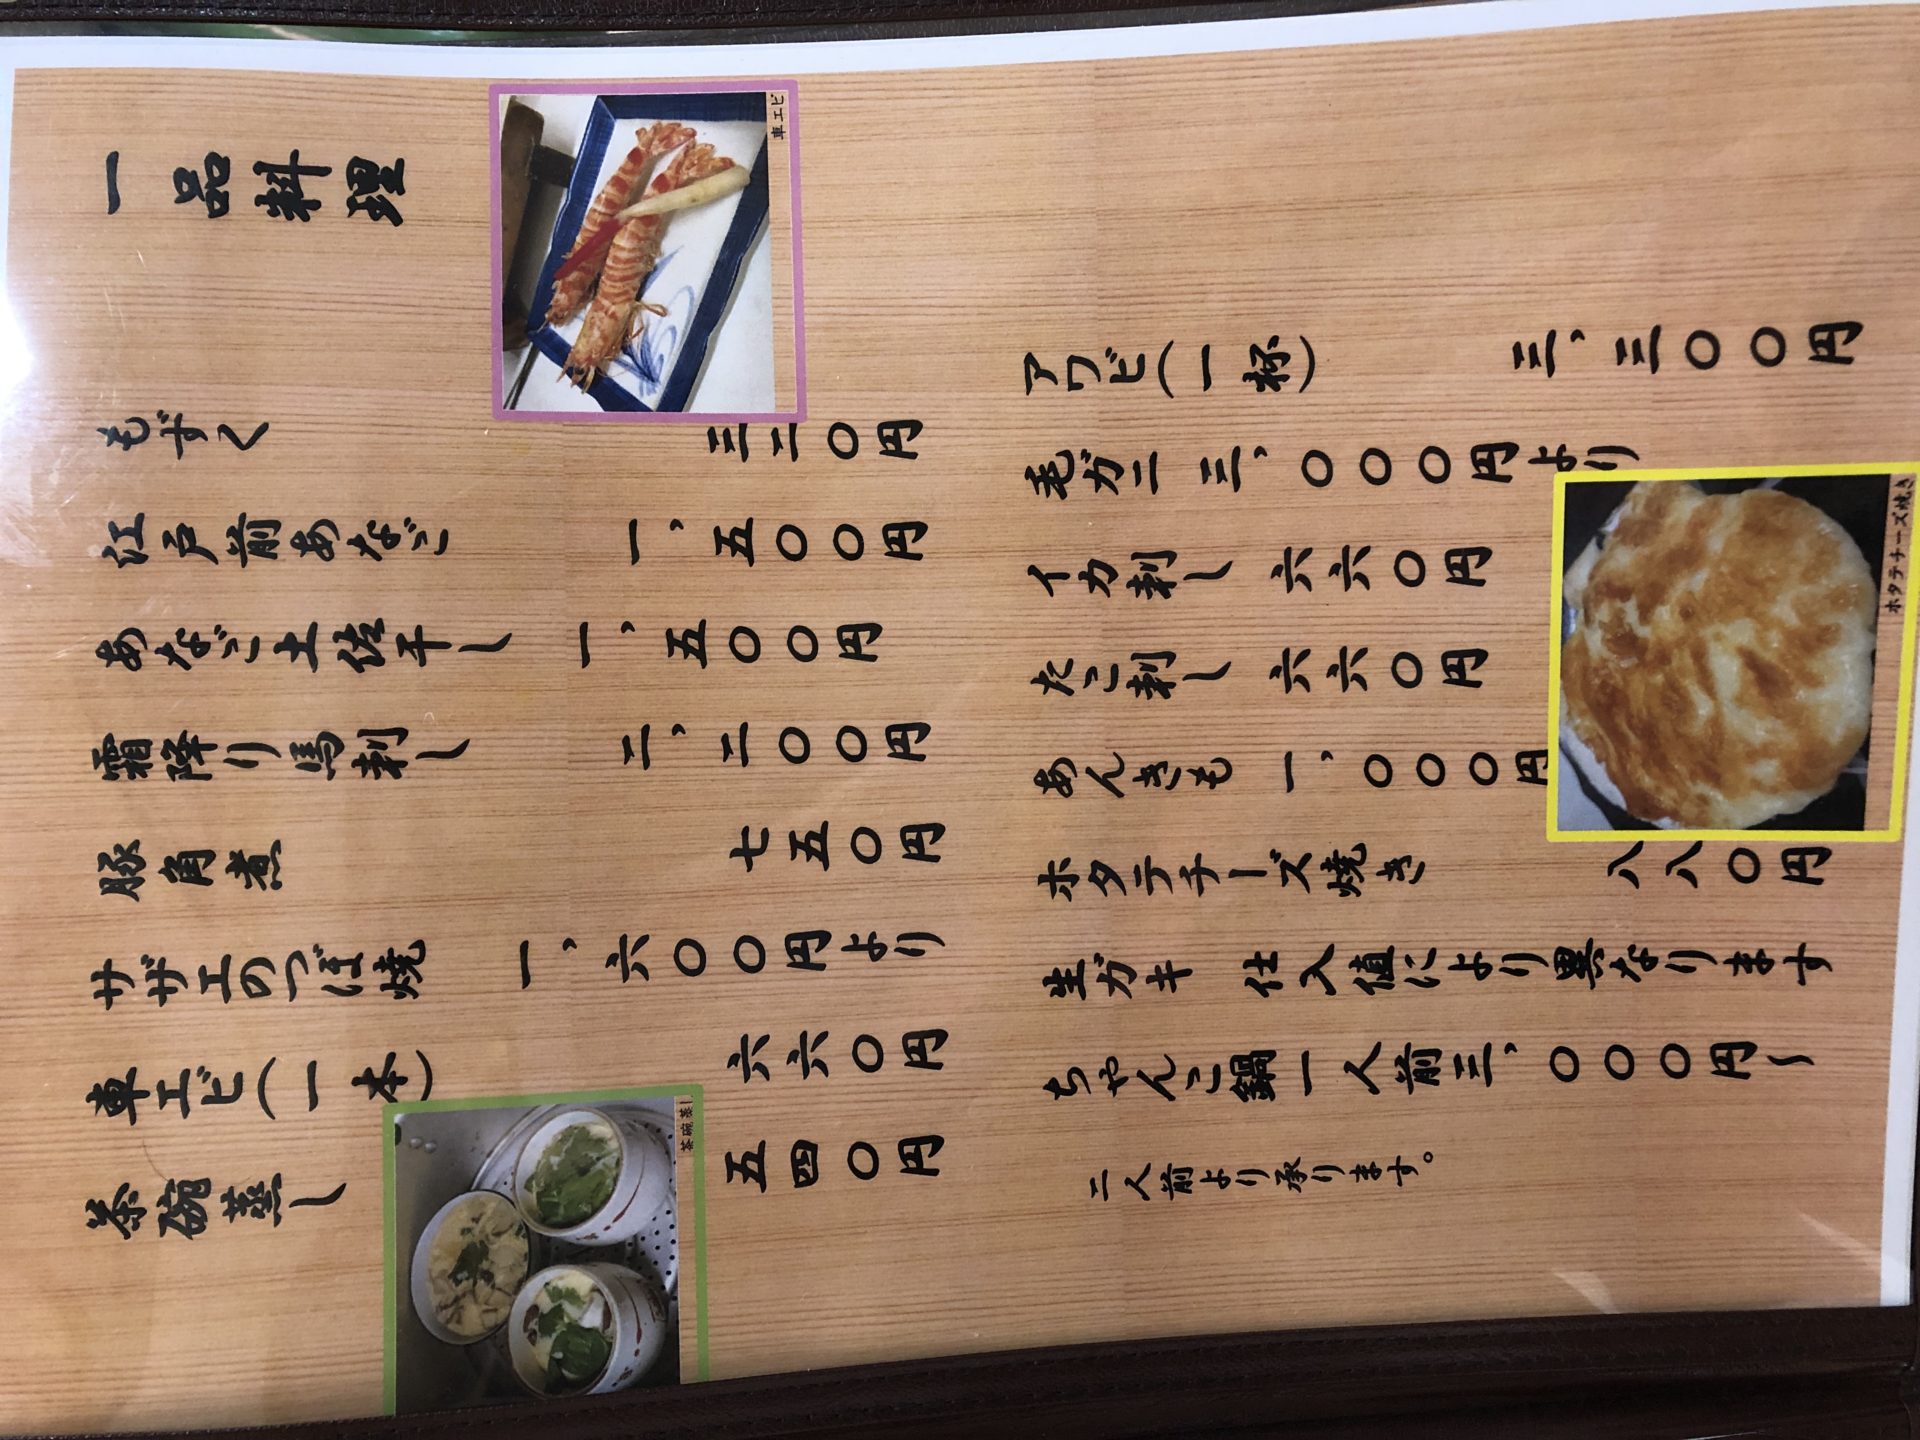 一品料理
車エビ
もずく 三二〇円
江戸前あなご 一、五〇〇円
あなご土佐干し 一、五〇〇円
霜降り馬刺し 二、二〇〇円
豚角煮 七五〇円
サザエのつぼ焼 一、六〇〇円より
車エビ(一本) 六六〇円
茶碗蒸し 五四〇円
茶碗蒸し
アワビ(一杯) 三、三〇〇円
毛ガニ 三、〇〇〇円より
イカ刺し 六六〇円
たこ刺し 六六〇円
あんきも 一、〇〇〇円
ホタテチーズ焼き
ホタテチーズ焼き 八八〇円
生ガキ 仕入値により異なります
ちゃんこ鍋一人前三、〇〇〇円〜
二人前より承ります。